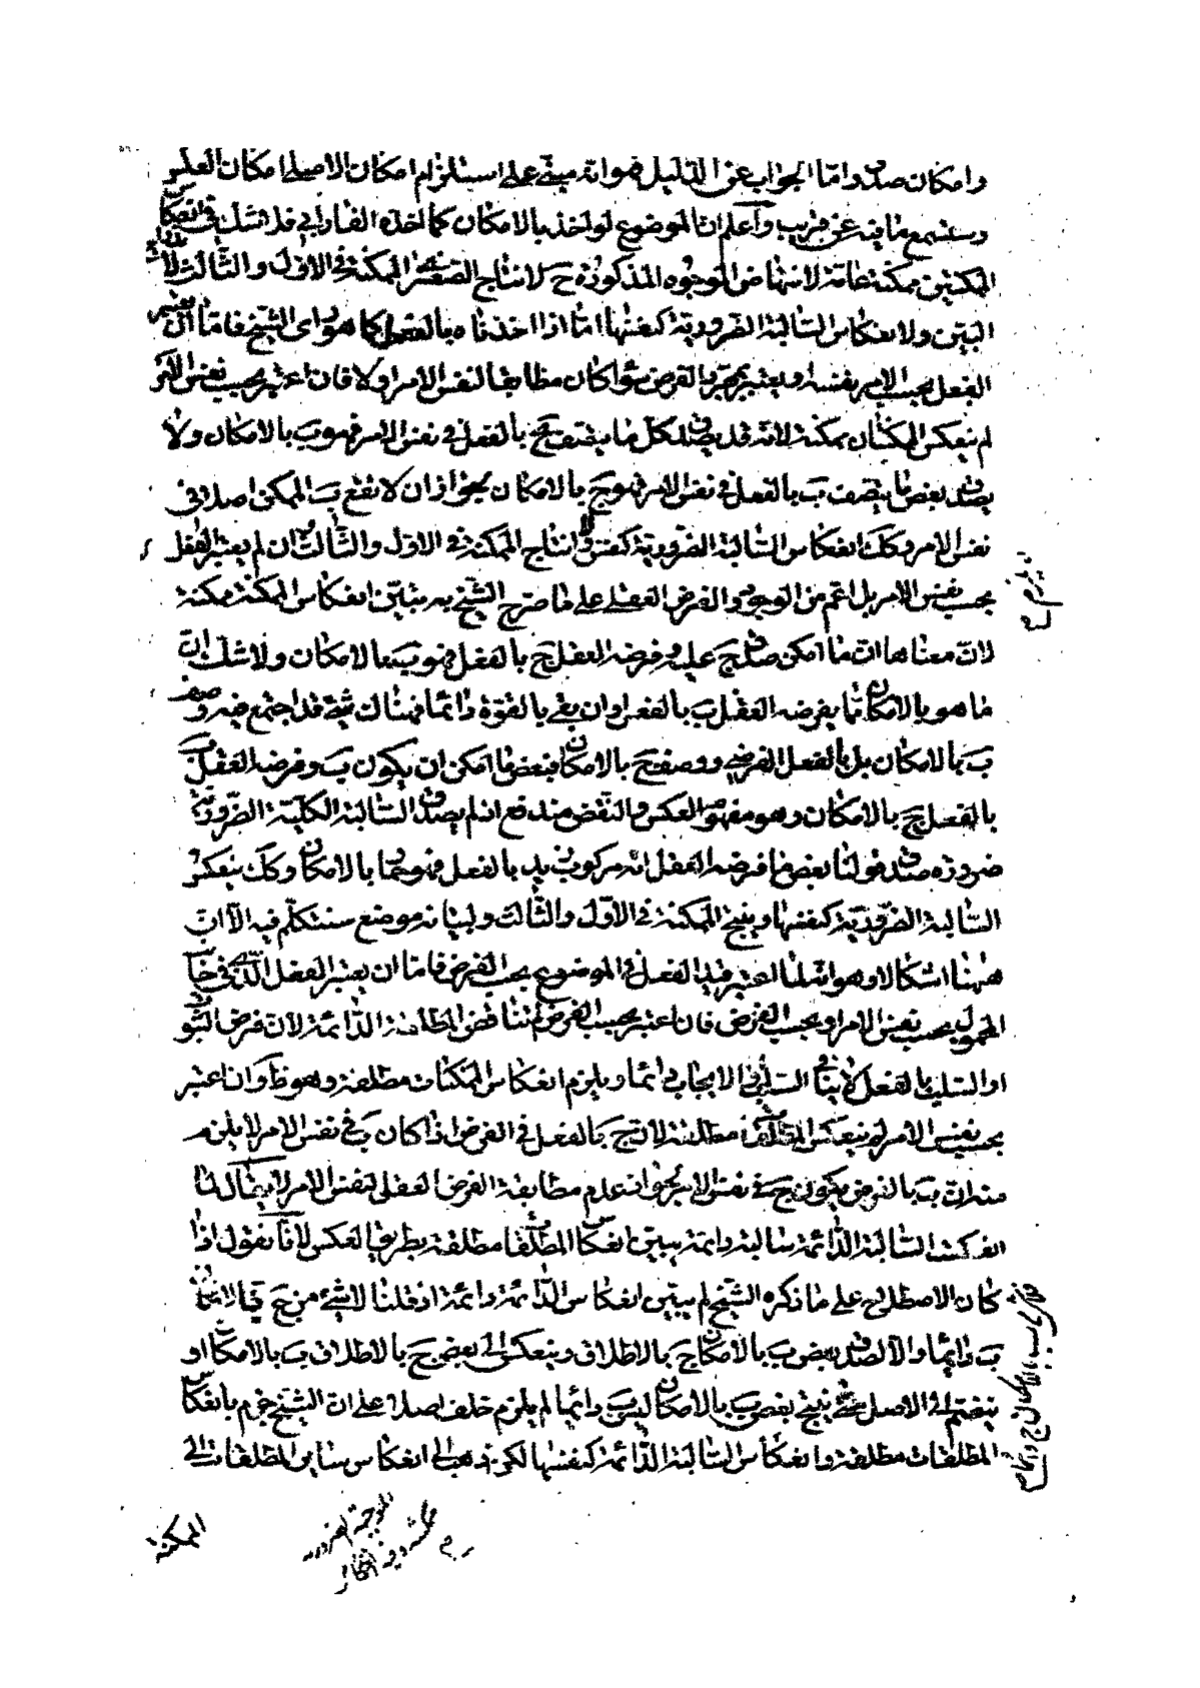 وامكان صدق واما الجواب عن الدليل فهو انه مبنى على استلزام امكان الاصل امكان العكس
وستسمع ما فيه عن قريب واعلم ان الموضوع لو اخذ بالامكان كما اخذه الفارابي فلا شك في انعكاس
الممكنتين ممكنة عامة لانتهاض الوجوه المذكورة ح لانتاج الصغرى الممكنة في الاول والثالث
البين ولانعكاس السالبة الضرورية كنفسها اما اذا اخذناه بالفعل كما هو راى الشيخ فاما ان يعتبر
الفعل بحسب الامر نفسه او يعتبر بمجرد الفرض سواء كان مطابقا لنفس الامر او لا فان اعتبر بحسب نفس الامر
لم ينعكس الممكنتان ممكنة لانه قد يصدق كل ما يتصف بج بالفعل في نفس الامر فهو ب بالامكان ولا
يصدق بعض ما يتصف ب بالفعل في نفس الامر فهو ج بالامكان بجواز ان لا يقع ب الممكن اصلا في
نفس الامر وكك انعكاس السالبة الضرورية كنفسها وانتاج الممكنة في الاول والثالث وان لم يعتبر الفعل
بحسب نفس الامر بل اعم من الوجود والفرض العقلى على ما صرح الشيخ به يتبين انعكاس الممكنة ممكنة
لان معناها ان ما امكن صدق ج عليه وفرضه العقل ج بالفعل فهو ب بالامكان ولا شك ان
ما هو ب بالامكان مما يفرضه العقل ب بالفعل وان بقى بالقوة دائما فهناك شئ قد اجتمع فيه وصف
ب بالامكان بل بالفعل الفرضى ووصف ج بالامكان فبعض ما امكن ان يكون ب وفرضه العقل ب
بالفعل ج بالامكان وهو مفهوم العكس والنقض مندفع اذ لم يصدق السالبة الكلية الضرورية
ضرورة صدق قولنا بعض ما فرضه العقل انه مركوب زيد بالفعل فهو حمار بالامكان وكك ينعكس
السالبة الضرورية كنفسها وينتج الممكنة في الاول والثالث ولبيانه موضع سنتكلم فيه الا ان
ههنا اشكالا وهو انه لما اعتبر قيد الفعل في الموضوع بحسب الفرض فاما ان يعتبر الفعل الذى في جانب
المحمول بحسب نفس الامر او بحسب الفرض فان اعتبر بحسب الفرض المطلقة الدائمة لان فرض الثبوت
او السلب بالفعل لا ينافى السلب او الايجاب دائما ويلزم انعكاس الممكنات مطلقة وهو ظ وان اعتبر
بحسب نفس الامر لم ينعكس المطلقة مطلقة لان ج بالفعل في الفرض اذا كان ب في نفس الامر لا يلزم
منه ان ب بالفرض يكون ج في نفس الامر بجواز عدم مطابقة الفرض العقلى لنفس الامر لا يقال لما
انعكست السالبة الدائمة سالبة دائمة يتبين انعكاس المطلقات مطلقة بطريق العكس لانا نقول اذا
كان الاصطلاح على ما ذكره الشيخ لم يتبين انعكاس الدائمة دائمة اذ قلنا لا شئ من ج بالامكان
ب دائما والا لصدق بعض ب بالامكان ج بالاطلاق وينعكس الى بعض ج بالاطلاق ب بالامكان او
ينضم الى الاصل حتى ينتج بعض ب بالامكان ليس ب دائما لم يلزم خلف اصلا على ان الشيخ جزم بانعكاس
المطلقات مطلقة وانعكاس السالبة الدائمة كنفسها لكن ذهب الى انعكاس سائر المطلقات الى
الممكنة